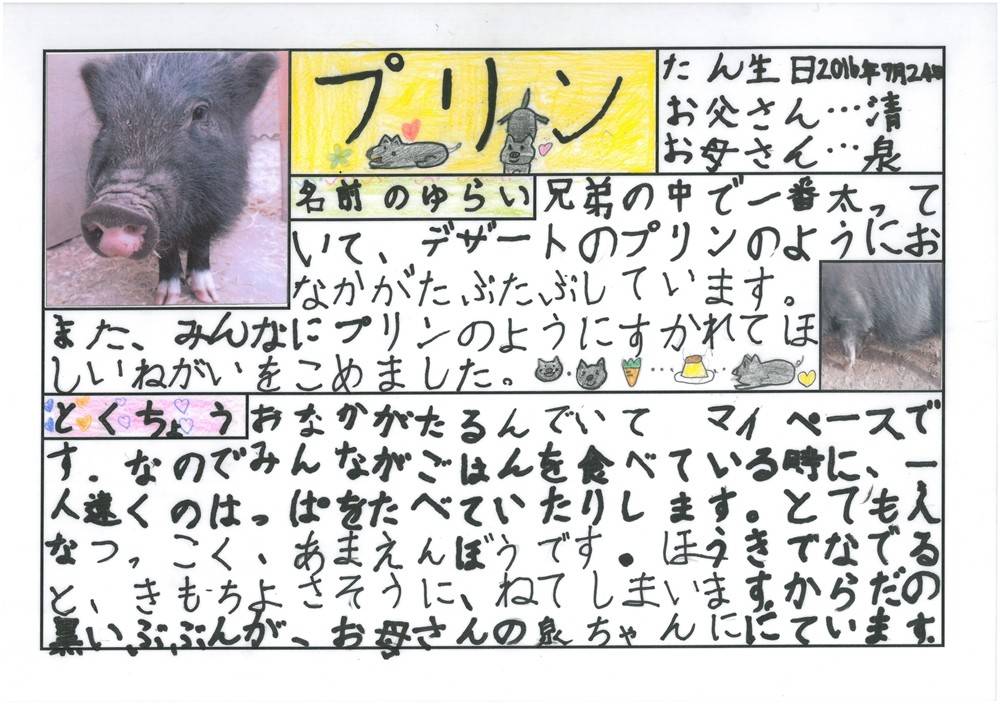 プリン
たん生日2016年7月24日
お父さん…清
お母さん…泉
名前のゆらい
兄弟の中で一番太って
いて、デザートのプリンのようにお
なかがたぶたぶしています。
また、みんなにプリンのようにすかれてほ
しいねがいをこめました。
とくちょう
おなかがたるんでいて マイペースで
す.なのでみんながごはんを食べている時に、一
人遠くのはっぱをたべていたりします。とても人
なつっこく、あまえんぼうです。ほうきでなでる
と、きもちよさそうに、ねてしまいます.からだの
黒いぶぶんが、お母さんの泉ちゃんににています.